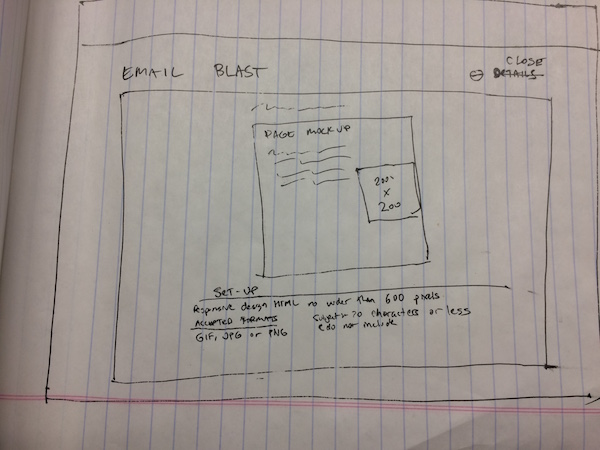 EMAIL BLAST
CLOSE
DETAILS
PAGE MOCKUP
200
X
200
SET-UP
Responsive design HTML no wider than 600 pixels
ACCEPTED FORMATS
GIF, JPG or PNG
Subject 70 characters or less
do not include